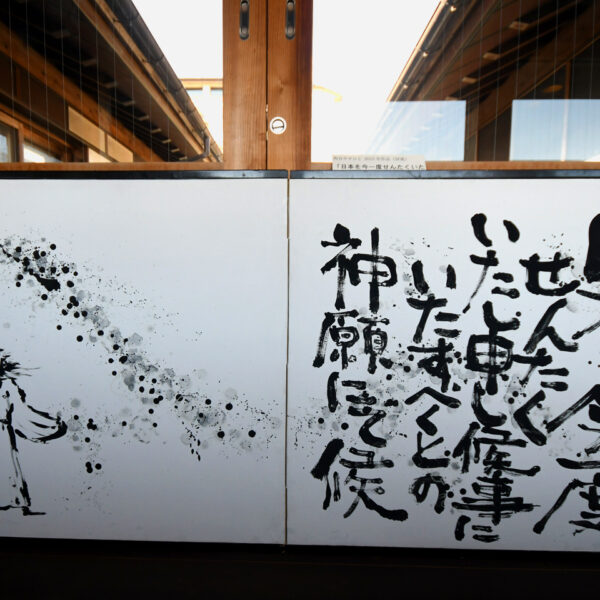 「日本を今一度せんたくいた
今一度
せんたく
いたし申し候事に
いたすべくとの
神願にて候